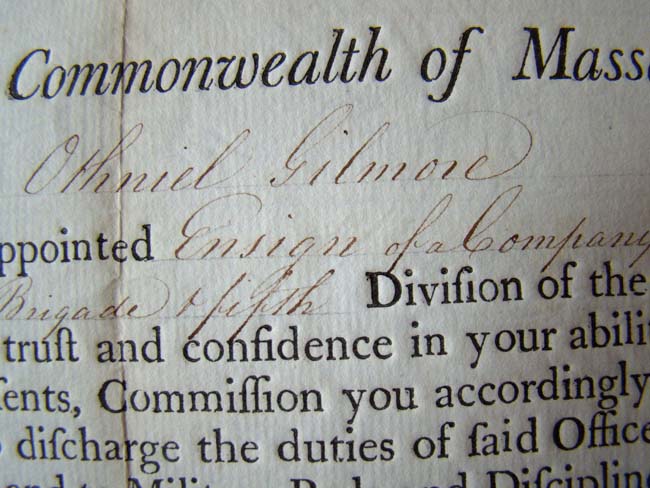 Commonwealth of Mass
Othniel Gilmore
ppointed Ensign of a Company
Brigade & fifth Diviſion of the
truſt and confidence in your abili
ſents, Commiſſion you accordingly
diſcharge the duties of ſaid Office
and to Military Rule and Diſcipline